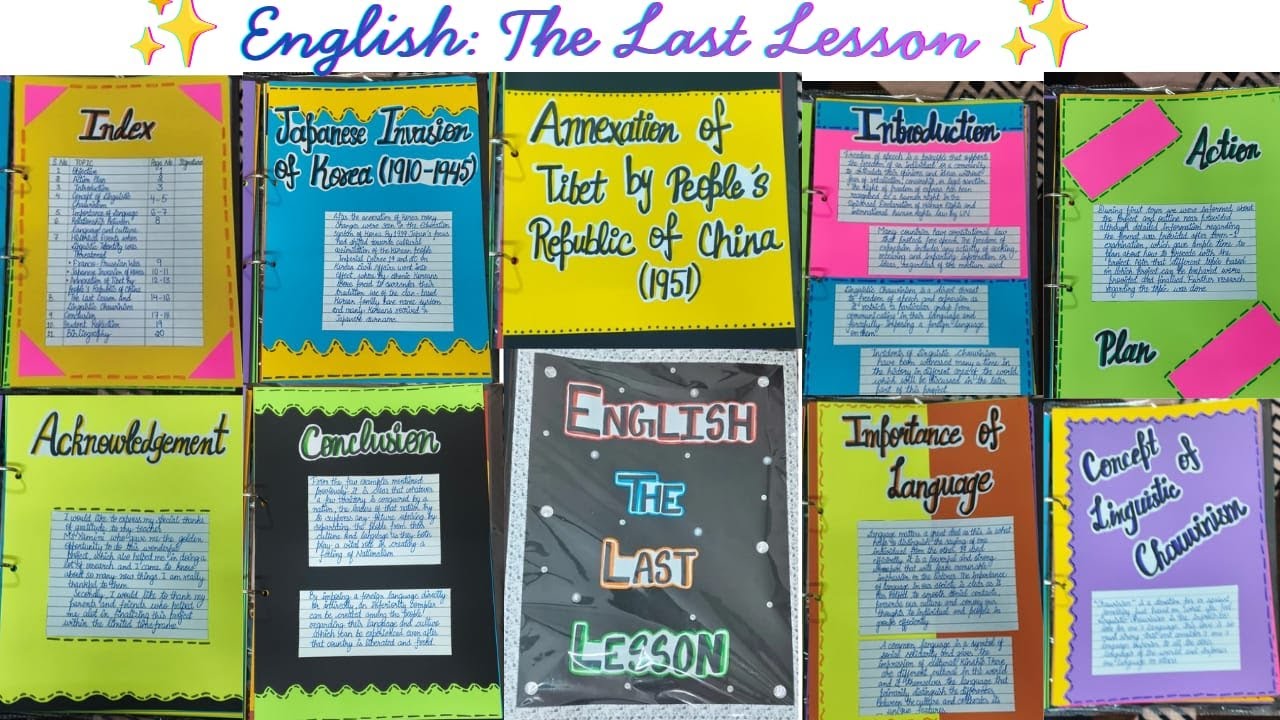 English: The Last Lesson
Index
S.No. TOPIC Page No Signature
1 Objective 1
2 Action Plan 2
3 Introduction 3
4 Concept of Linguistic Chauvinism 4-5
5 Importance of Language 6-7
6 Relationship Between Language and culture 8
7 Historical Events when Linguistic Identity was Threatened
• Franco-Prussian War 9
• Japanese Invasion of Korea 10-11
• Annexation of Tibet by People's Republic of China 12-13
8. The Last Lesson And Linguistic Chauvinism 14-16
9 Conclusion 17-18
10. Student Reflection 19
11. Bibliography 20
Japanese Invasion
of Korea (1910-1945)
After the annexation of Korea many
changes were seen in the Education
system of Korea. By 1939 Japan's focus
had shifted towards cultural
assimilation of the Korean people
Imperial Decree 19 and 20 on
Korean Civil Affairs went into
effect, whereby ethnic Koreans
were forced to surrender their
traditional use of clan-based
Korean family
Japanese surname.
Annexation of
Tibet by People's
Republic of China
(1951)
Introduction
Freedom of speech is a principle that supports
the freedom of an individual or a community
to articulate their opinions and ideas without
fear of retaliation, censorship, or legal sanction
The Right of freedom of expression has been
recognised as a human right in the
Universal Declaration of Human Rights and
international human rights law by UN.
Many countries have constitutional law
that protects free speech. The freedom of
expression includes any activity of seeking,
receiving and imparting information or
ideas, regardless of the medium used
Linguistic Chauvinism is a direct threat
to freedom of speech and expression as
it restricts a particular group from
communicating in their language and
forcefully imposing a foreign language
on them
Incidents of Linguistic Chauvinism
have been witnessed many a time in
the history in different areas of the world
which will be discussed in the later
part of this project.
Action
During first term we were informed about
the project and outline was provided
although detailed information regarding
the format was provided after term
examination, which gave ample time to
plan about how to proceed with the
project. Also that different topics based
on which project can be prepared were
provided and finalised. Further research
regarding the topic was done
Plan
Acknowledgement
I would like to express my special thanks
of gratitude to my teacher
who gave me the golden
opportunity to do this wonderful
project, which also helped me in doing a
lot of research and I came to know
about so many new things. I am really
thankful to them.
Secondly, I would like to thank my
parents and friends who helped
me a lot in finalizing this project
within the limited time frame.
Conclusion
From the few examples mentioned
previously it is clear that whenever
a territory is conquered by a
nation, the leaders of that nation try
to suppress any future uprising by
separating the people from their
culture and language as they both
play a vital role in creating a
feeling of Nationalism
By imposing a foreign language directly
or indirectly, an inferiority complex
can be created among the people
regarding their language and culture
which can be experienced even after
that country is liberated and freed.
ENGLISH
THE
LAST
LESSON
Importance of
Language
Language matters a great deal as this is what
helps to distinguish the saying of one
individual from the other. If used
efficiently, it is a powerful and strong
that will make memorable
impression on the listener. The importance
of language in our society is
the helpful to smooth social contacts,
our culture and convey our
thoughts to individual and people in
groups efficiently
A common language is a symbol of
social solidarity and gives the
impression of cultural kinship. There
are different cultures in the world
and it themselves the language that
primarily distinguish the differences
between the culture and celebrates its
unique features
Concept of
Linguistic
Chauvinism
"Chauvinism" is a
Linguistic chauvinism is the
language superior to all the other
languages of the world and
language on others.